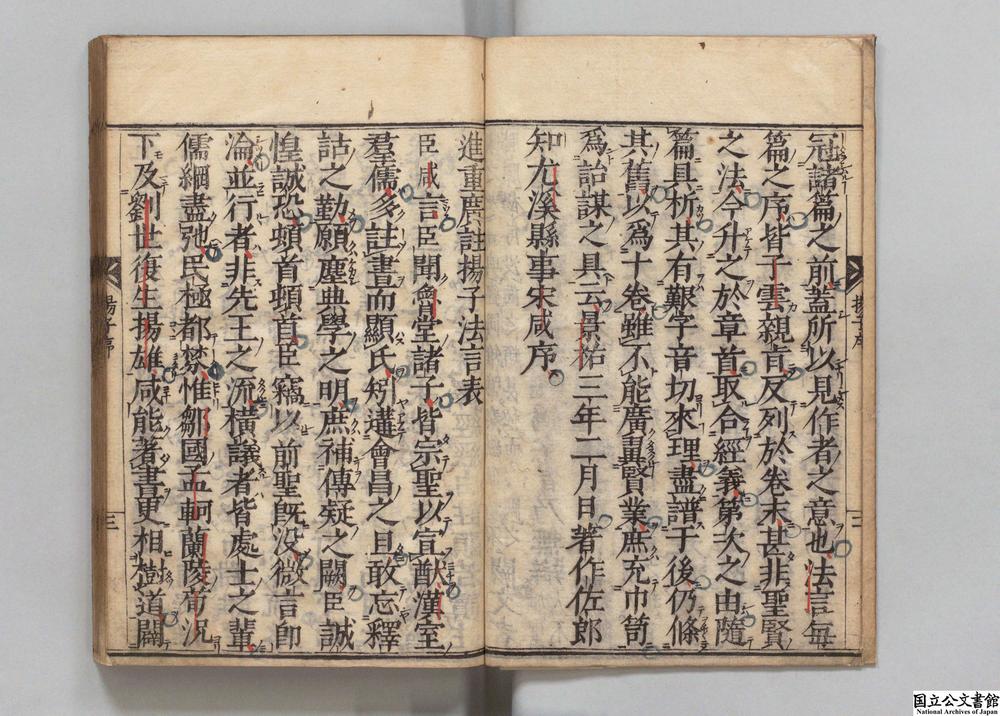 冠諸篇之前蓋所以見作者之意也法言每
篇之序皆子雲親旨反列於卷末甚非聖賢
之法今升之於章首取合經義第次之由隨
篇具析其有艱字音切來理盡譜于後仍條
其舊以爲十卷雖不能廣翼賢業庶充巾笥
爲詒謀之具云景祐三年二月日著作佐郎
知尤溪縣事宋咸序
進重廣註揚子法言表
臣咸言臣聞會堂諸子皆宗聖以宣猷漢室
羣儒多註書而顯氏矧遘會昌之旦敢忘釋
詁之勤願塵典學之明庶補傳疑之闕臣誠
惶誠恐頓首頓首臣竊以前聖既没微言卽
淪並行者非先王之流橫議者皆處士之輩
儒綱盡弛民極都棼惟鄒國孟軻蘭陵荀況
下及劉世復生揚雄咸能著書更相樹道闢
揚子序
三
国立公文書館
National Archives of Japan